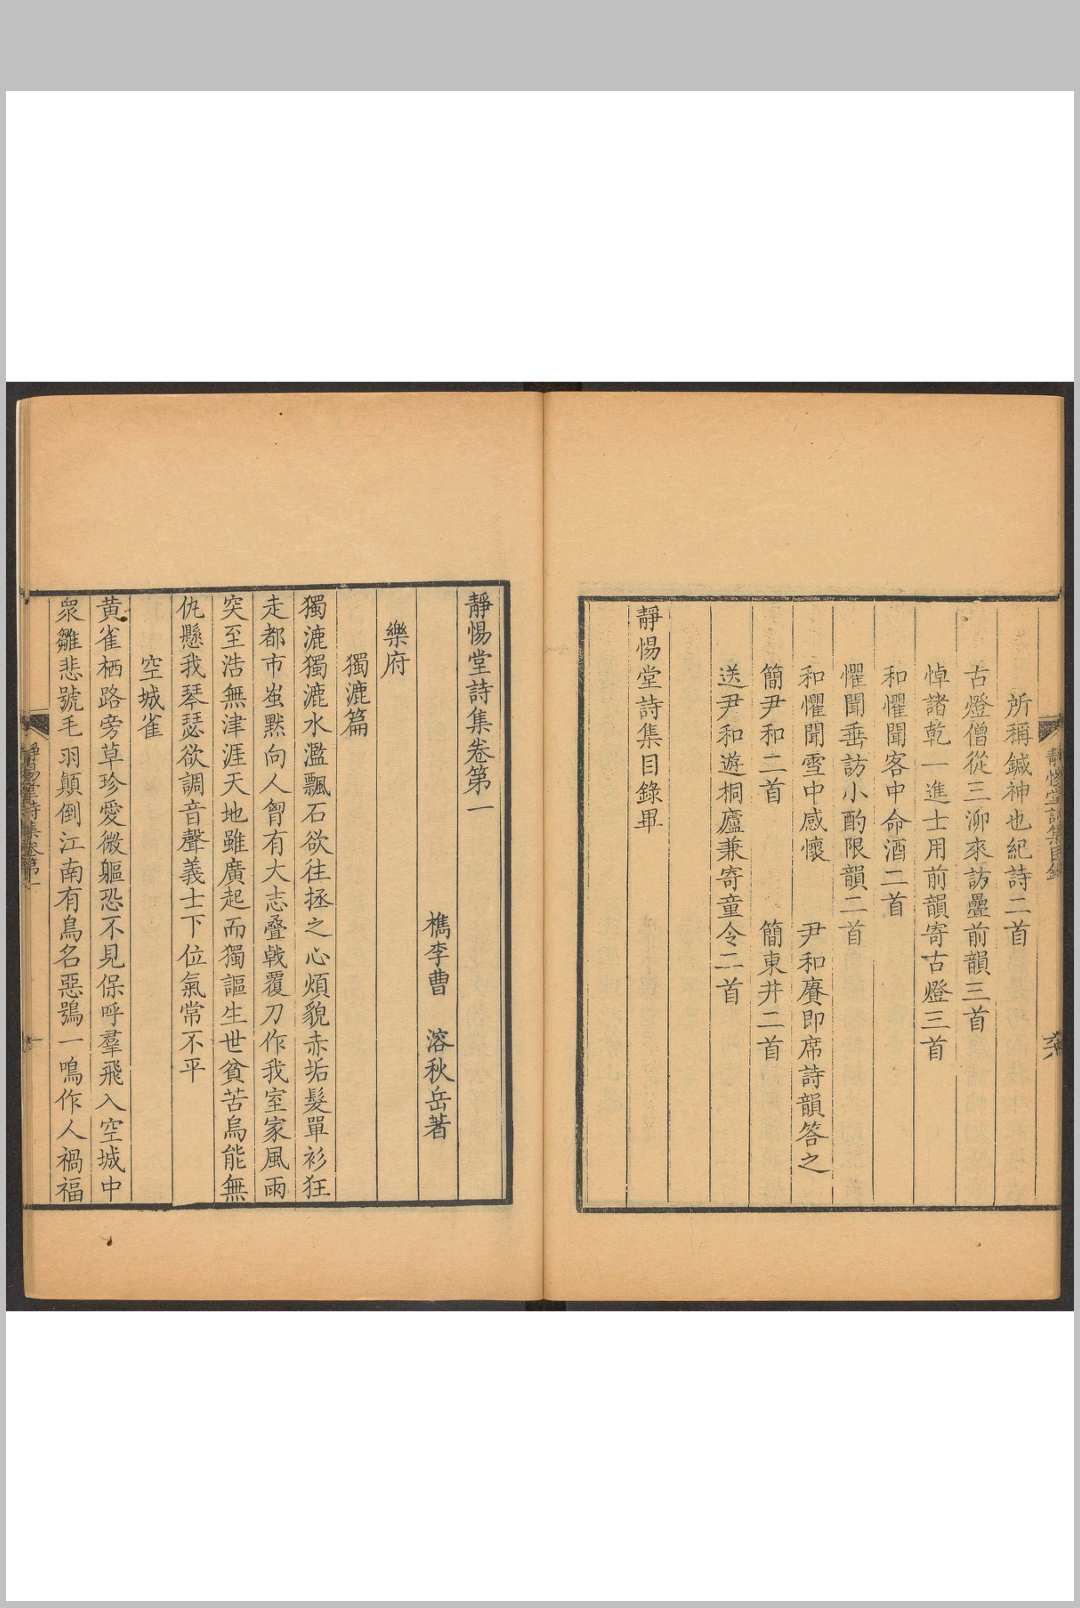 所稱鍼神也紀詩二首
古燈僧從三泖來訪疊前韻三首
悼諸乾一進士用前韻寄古燈三首
和懼聞客中命酒二首
懼聞垂訪小酌限韻二首
和懼聞雪中感懷 尹和賡即席詩韻答之
簡尹和二首 簡東井二首
送尹和遊桐廬兼寄童令二首
靜惕堂詩集目錄畢
靜惕堂詩集卷第一
檇李曹 溶秋岳著
樂府
獨漉篇
獨漉獨漉水濫飄石欲往拯之心煩貌赤垢髮單衫狂
走都市蚩黙向人胷有大志疊戟覆刀作我室家風雨
突至浩無津涯天地雖廣起而獨謳生世貧苦烏能無
仇懸我琴瑟欲調音聲義士下位氣常不平
空城雀
黃雀栖路旁草珍愛微軀恐不見保呼羣飛入空城中
衆雛悲號毛羽顛倒江南有鳥名惡鴞一鳴作人禍福